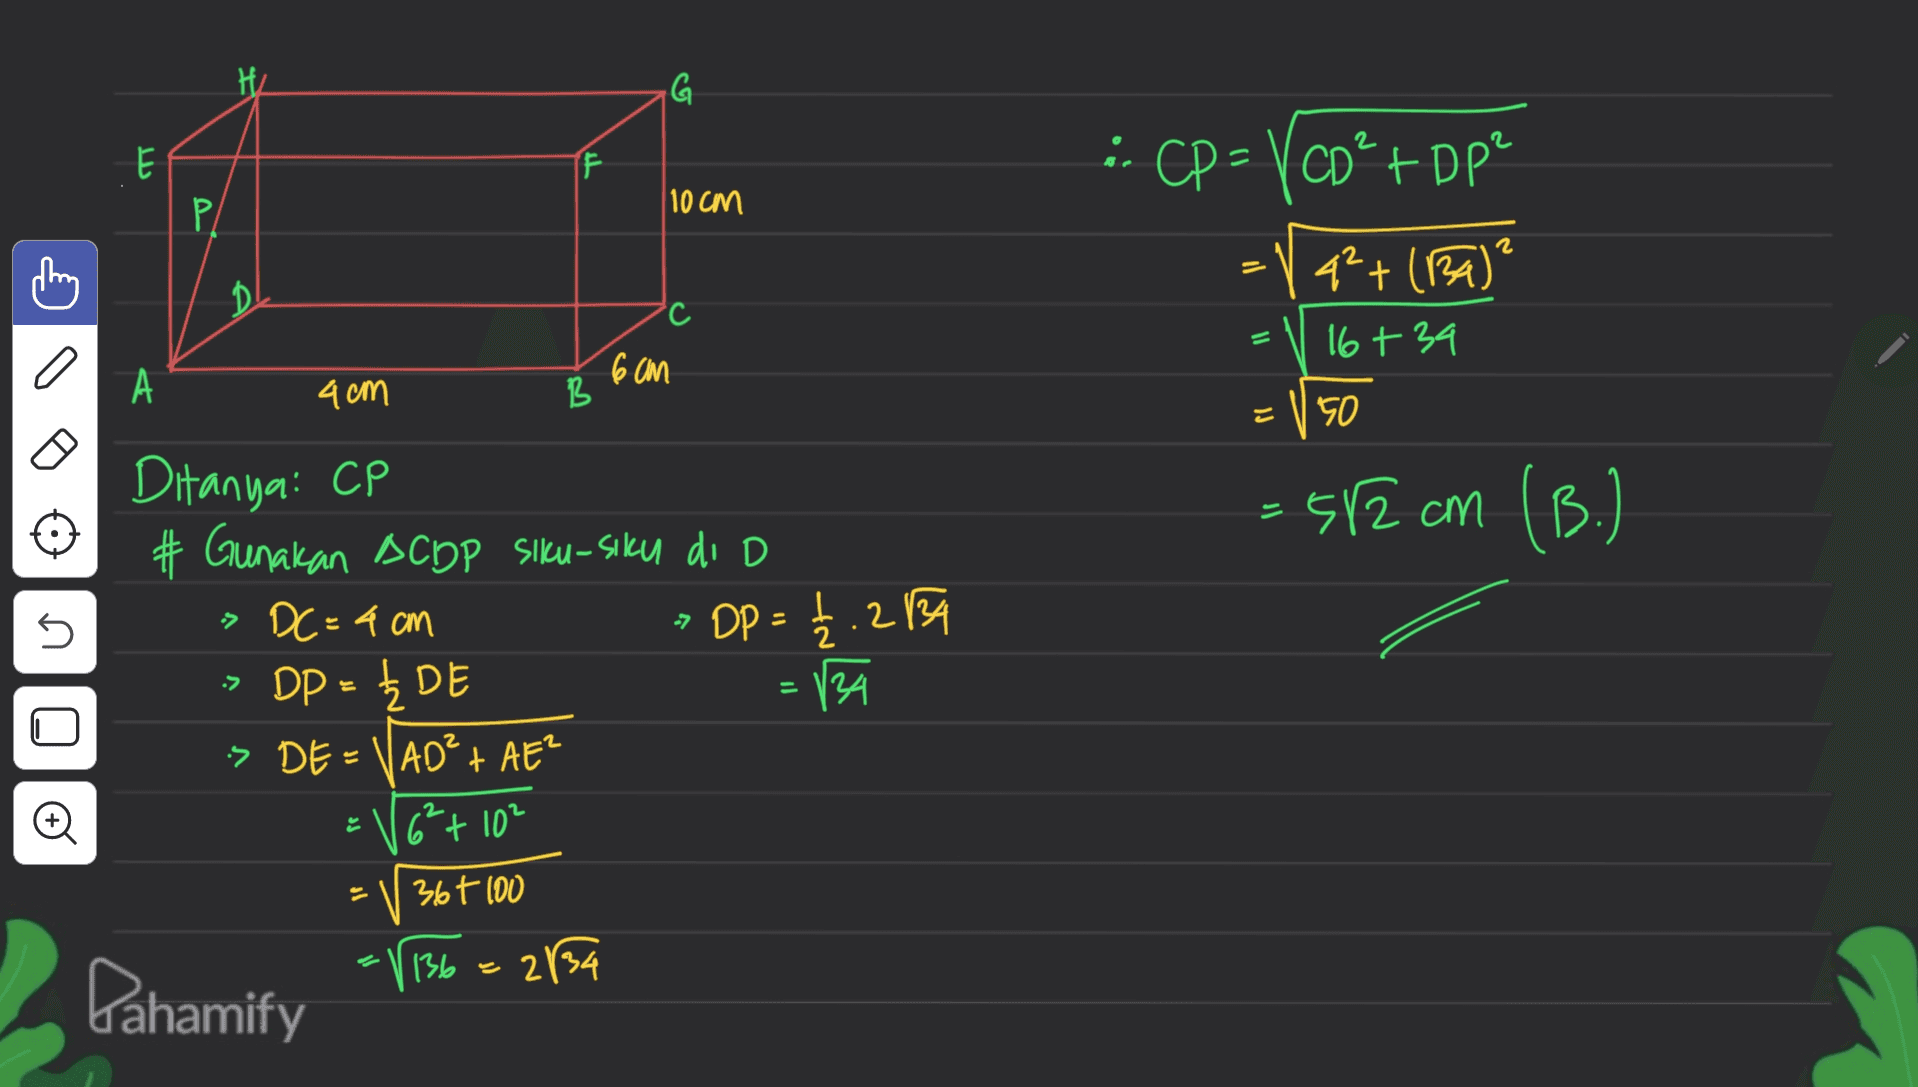 H
G
E
F
P
10 cm
D
C
A
4 cm
B
6 cm
Ditanya: CP
# Gunakan ΔCDP siku-siku di D
→ DC = 4 cm
→ DP = ½ DE
→ DE = √AD² + AE²
= √6² + 10²
= √36 + 100
= √136 = 2√34
→ DP = ½ . 2√34
= √34
∴ CP = √CD² + DP²
= √4² + (√34)²
= √16 + 34
= √50
= 5√2 cm (B.)
Pahamify